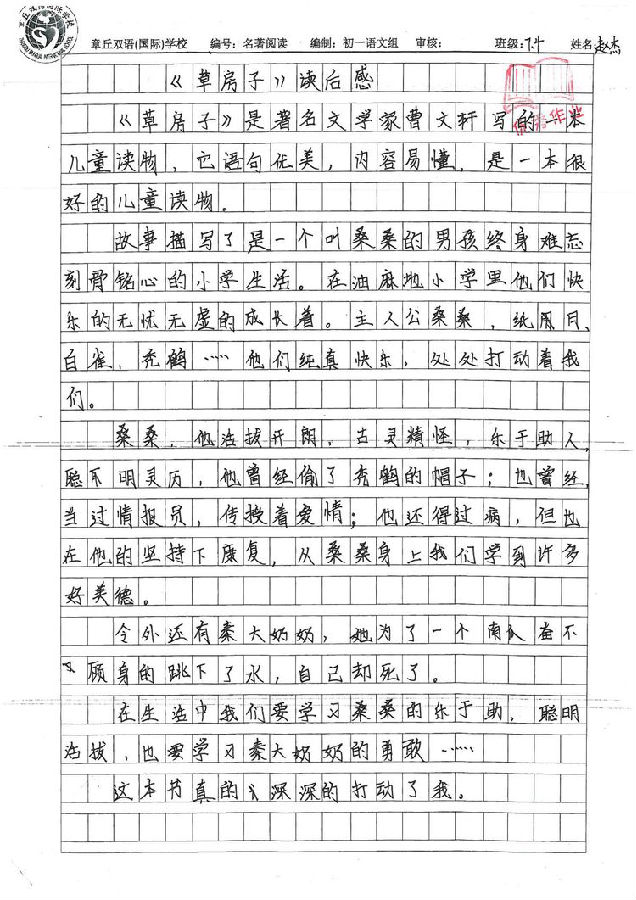 章丘双语(国际)学校 编号：名著阅读 编制：初一语文组 审核： 班级：7.4 姓名赵杰
《草房子》读后感
《草房子》是著名文学家曹文轩写的一本
儿童读物，它语句优美，内容易懂，是一本很
好的儿童读物。
故事描写了是一个叫桑桑的男孩终身难忘
刻骨铭心的小学生活。在油麻地小学里他们快
乐的无忧无虑的成长着。主人公桑桑，纸月、
白雀、秃鹤……他们纯真快乐，处处打动着我
们。
桑桑，他活拔开朗，古灵精怪，乐于助人，
聪不明灵历，他曾经偷了秃鹤的帽子；也曾经
当过情报员，传授着爱情；他还得过病，但也
在他的坚持下康复，从桑桑身上我们学到许多
好美德。
令外还有秦大奶奶，她为了一个南瓜奋不
顾身的跳下了水，自己却死了。
在生活中我们要学习桑桑的乐于助，聪明
活拔，也要学习秦大奶奶的勇敢……
这本书真的深深的打动了我。